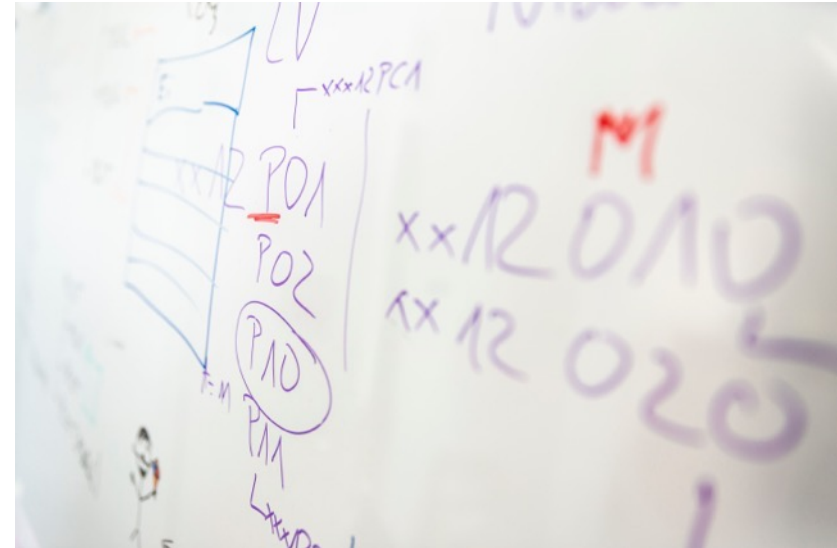 LV
xxx12PC1
xx12 P01
P02
P10
P11
M
xx12 010
xx12 020